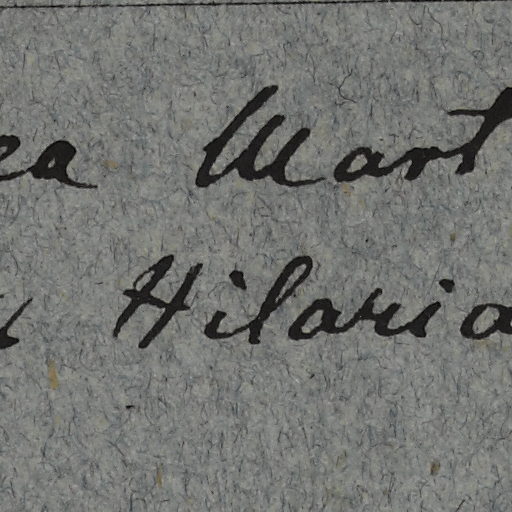 ea Mart
Hilaria